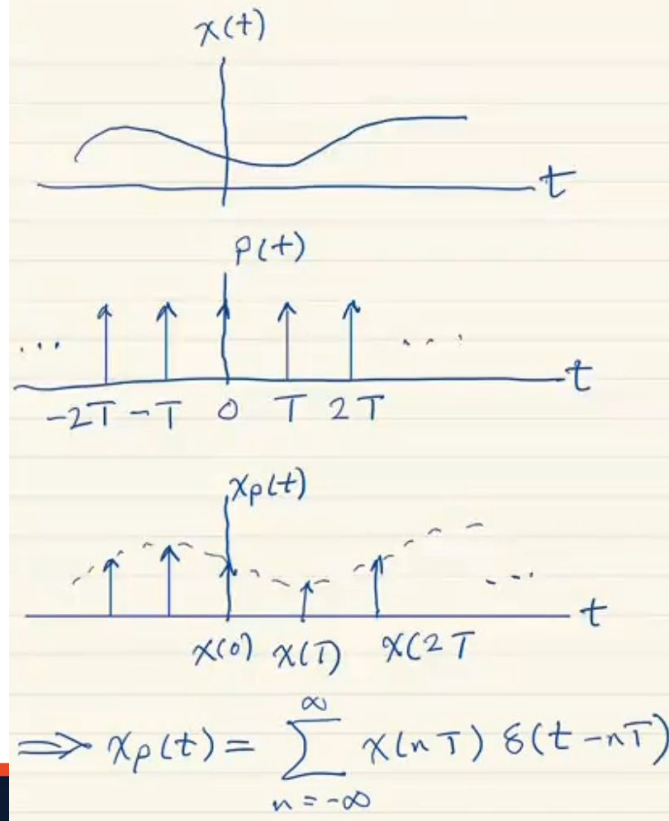 x(t)
t
p(t)
... ...
t
-2T -T 0 T 2T
xp(t)
...
t
x(0) x(T) x(2T
⇒ xp(t) = ∞ ∑ n = -∞ x(nT) δ(t - nT)